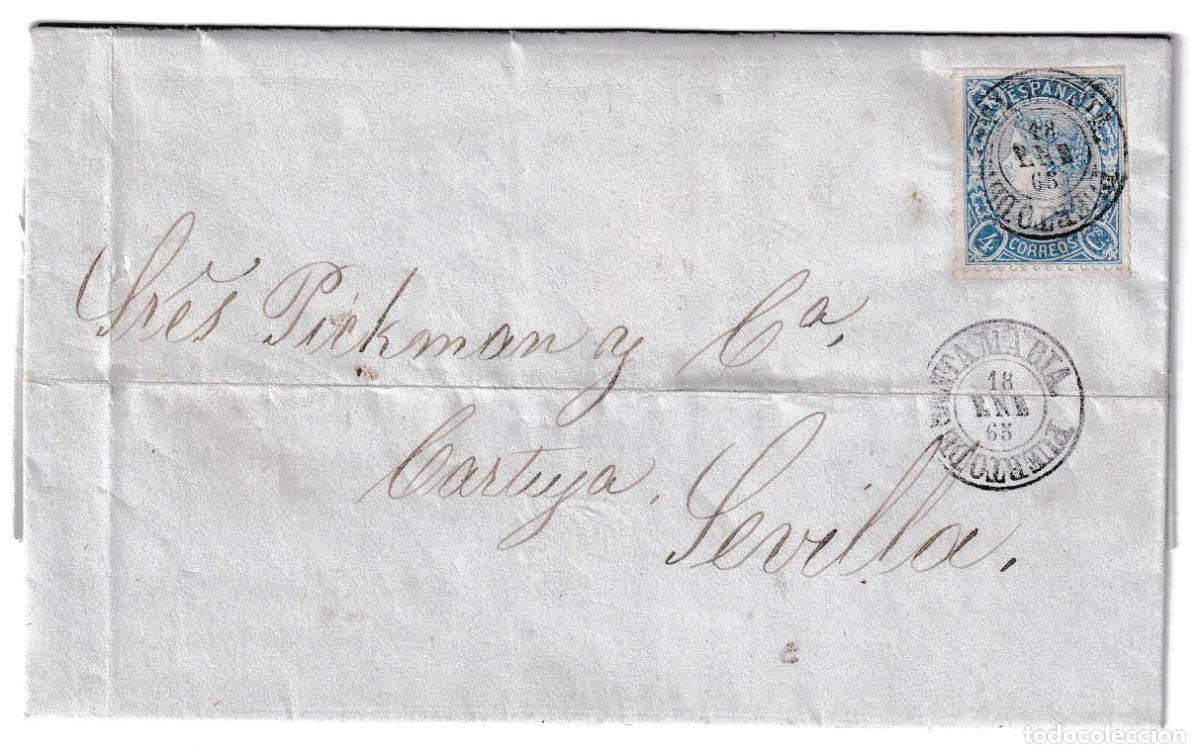 ESPAÑA
18
ENE
65
4 CORREOS Cs
Sres Pickman y Ca.
SANTA MARIA
18
ENE
65
PUERTO DE
Cartuja.
Sevilla.
todocoleccion